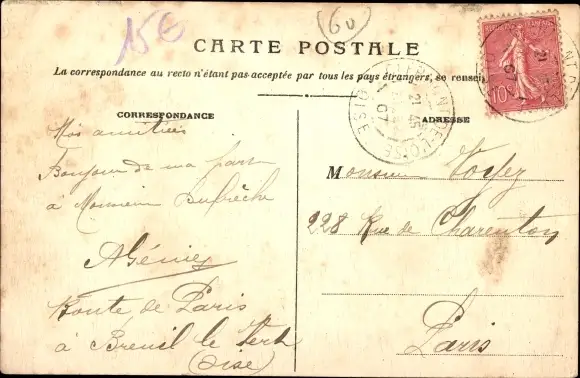 15€
60
CARTE POSTALE
La correspondance au recto n'étant pas acceptée par tous les pays étrangers, se renseig
CORRESPONDANCE
ADRESSE
Mes amitiés
Bonjour de ma part
à Monsieur
Route de Paris
à Breuil le Vert
(Oise)
Monsieur
228 Rue de Charenton
Paris
CLERMONT-DE-L'OISE
OISE
21 45
07
10